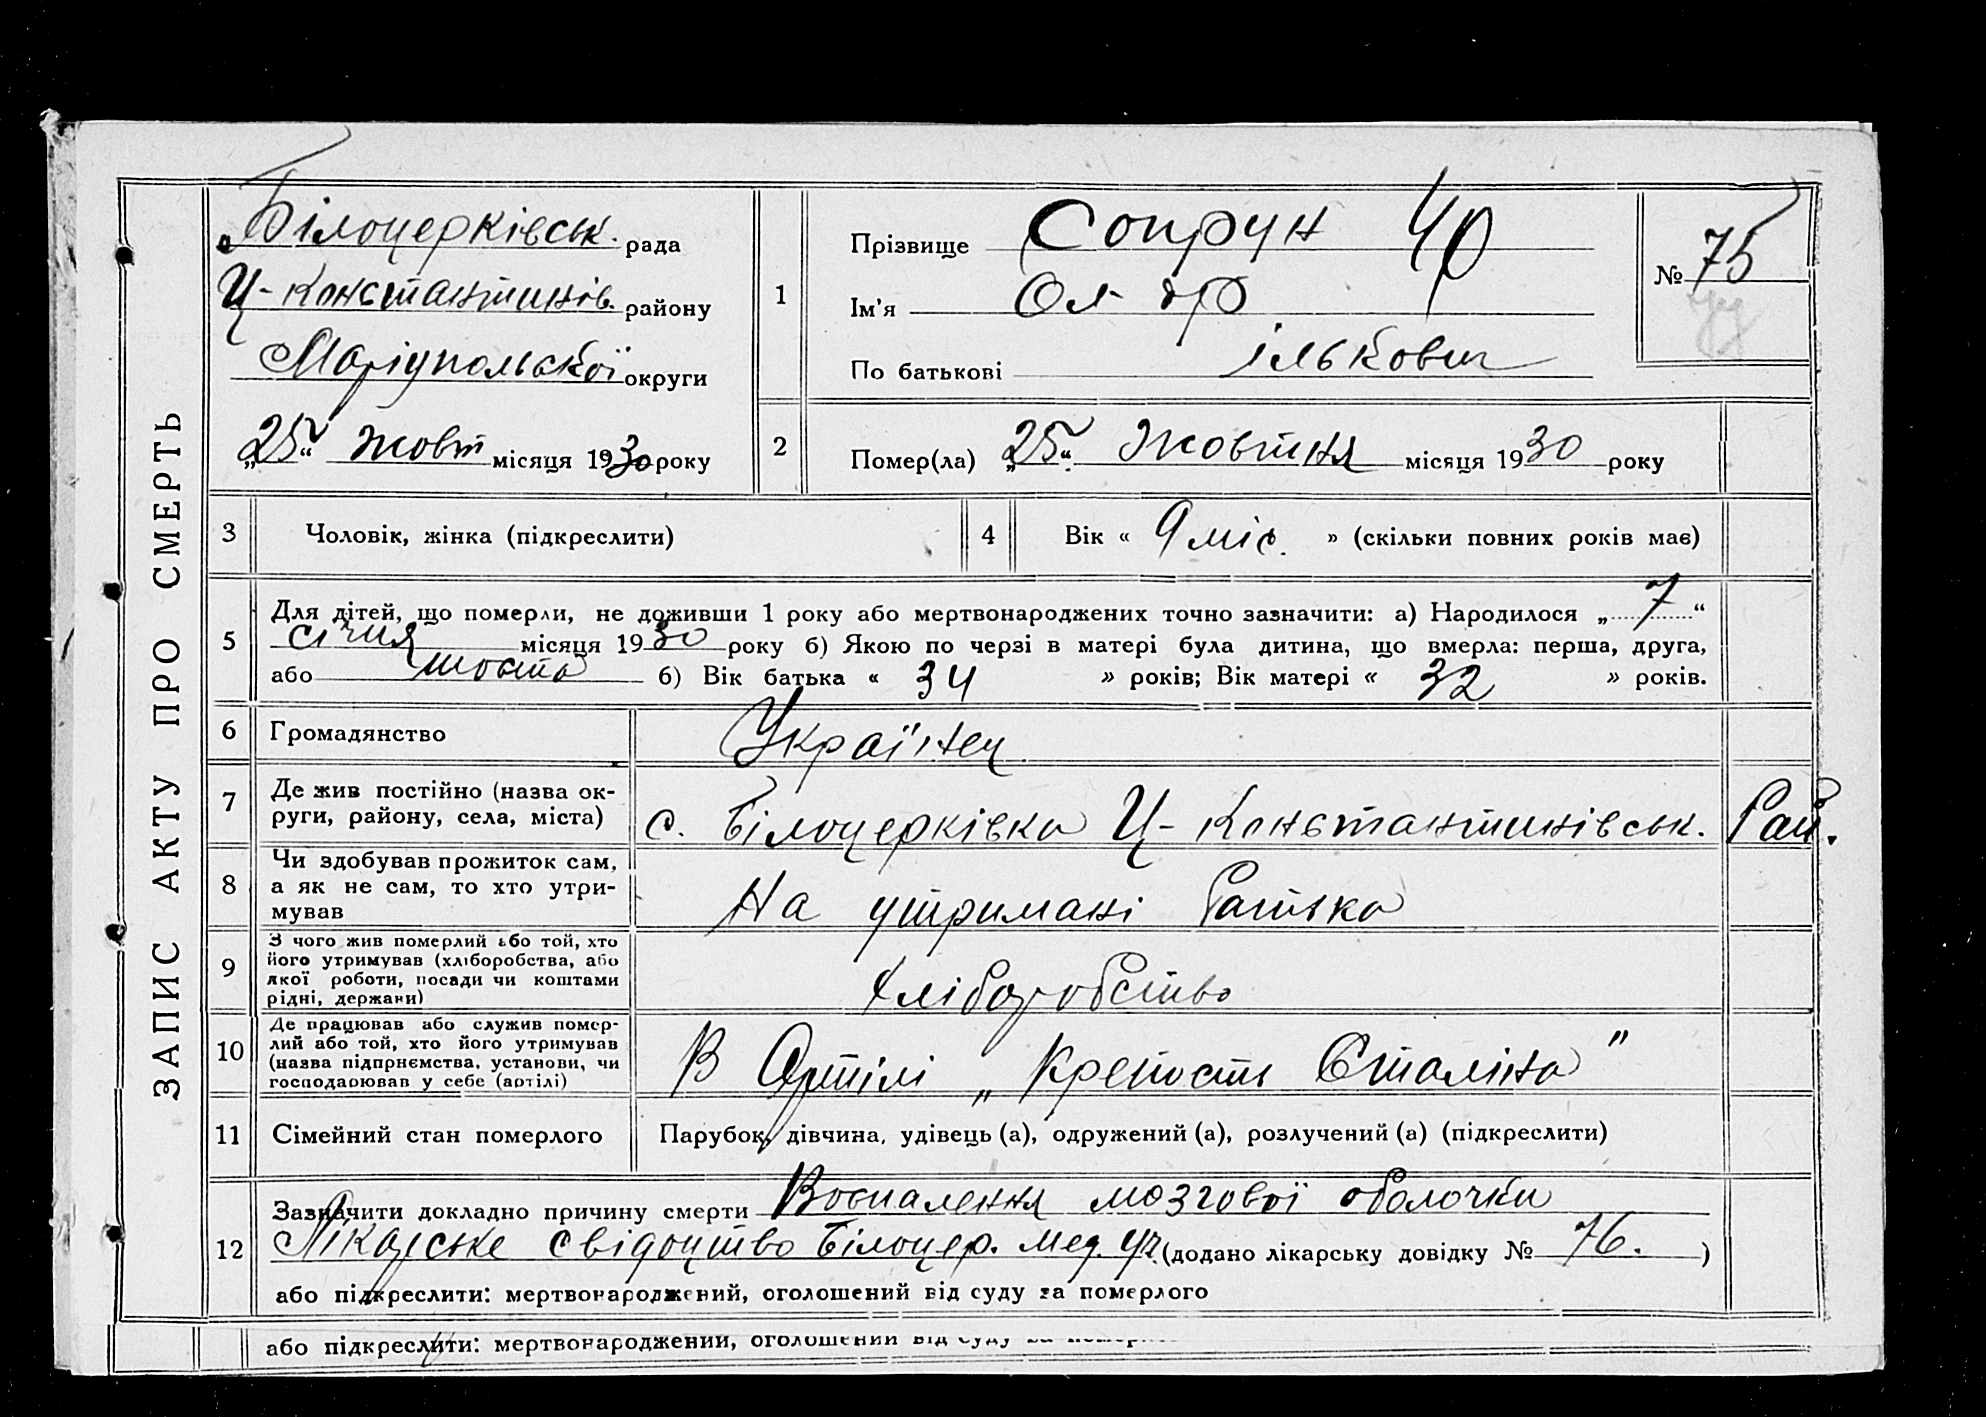 ЗАПИС АКТУ ПРО СМЕРТЬ
Білоцерківськ. рада
Ц-Константинів. району
Маріупольської округи
„25“ жовт місяця 1930 року
1
Прізвище Сопрун
Ім'я
По батькові ількович
№ 75
2
Помер(ла) „25“ Жовтня місяця 1930 року
3 Чоловік, жінка (підкреслити)
4 Вік « 9 міс. » (скільки повних років має)
5 Для дітей, що померли, не доживши 1 року або мертвонароджених точно зазначити: а) Народилося „7“
січня місяця 1930 року б) Якою по черзі в матері була дитина, що вмерла: перша, друга,
або шоста б) Вік батька « 34 » років; Вік матері « 32 » років.
6 Громадянство Українец
7 Де жив постійно (назва ок-
руги, району, села, міста) с. Білоцерківка Ц-Констатнтинівськ. Рай.
8 Чи здобував прожиток сам,
а як не сам, то хто утри-
мував На утримані батька
9 З чого жив померлий або той, хто
його утримував (хліборобства, або
якої роботи, посади чи коштами
рідні, держави) Хліборобство
10 Де працював або служив помер-
лий або той, хто його утримував
(назва підприємства, установи, чи
господарював у себе (артілі) В Артілі „Крепость Сталіна"
11 Сімейний стан померлого Парубок, дівчина, удівець (а), одружений (а), розлучений (а) (підкреслити)
12 Зазначити докладно причину смерти Воспалення мозгової оболочки
Лікарське свідоцтво Білоцер. мед. уч. (додано лікарську довідку № 76.)
або підкреслити: мертвонароджений, оголошений від суду за померлого
або підкреслити: мертвонароджений, оголошений від суду